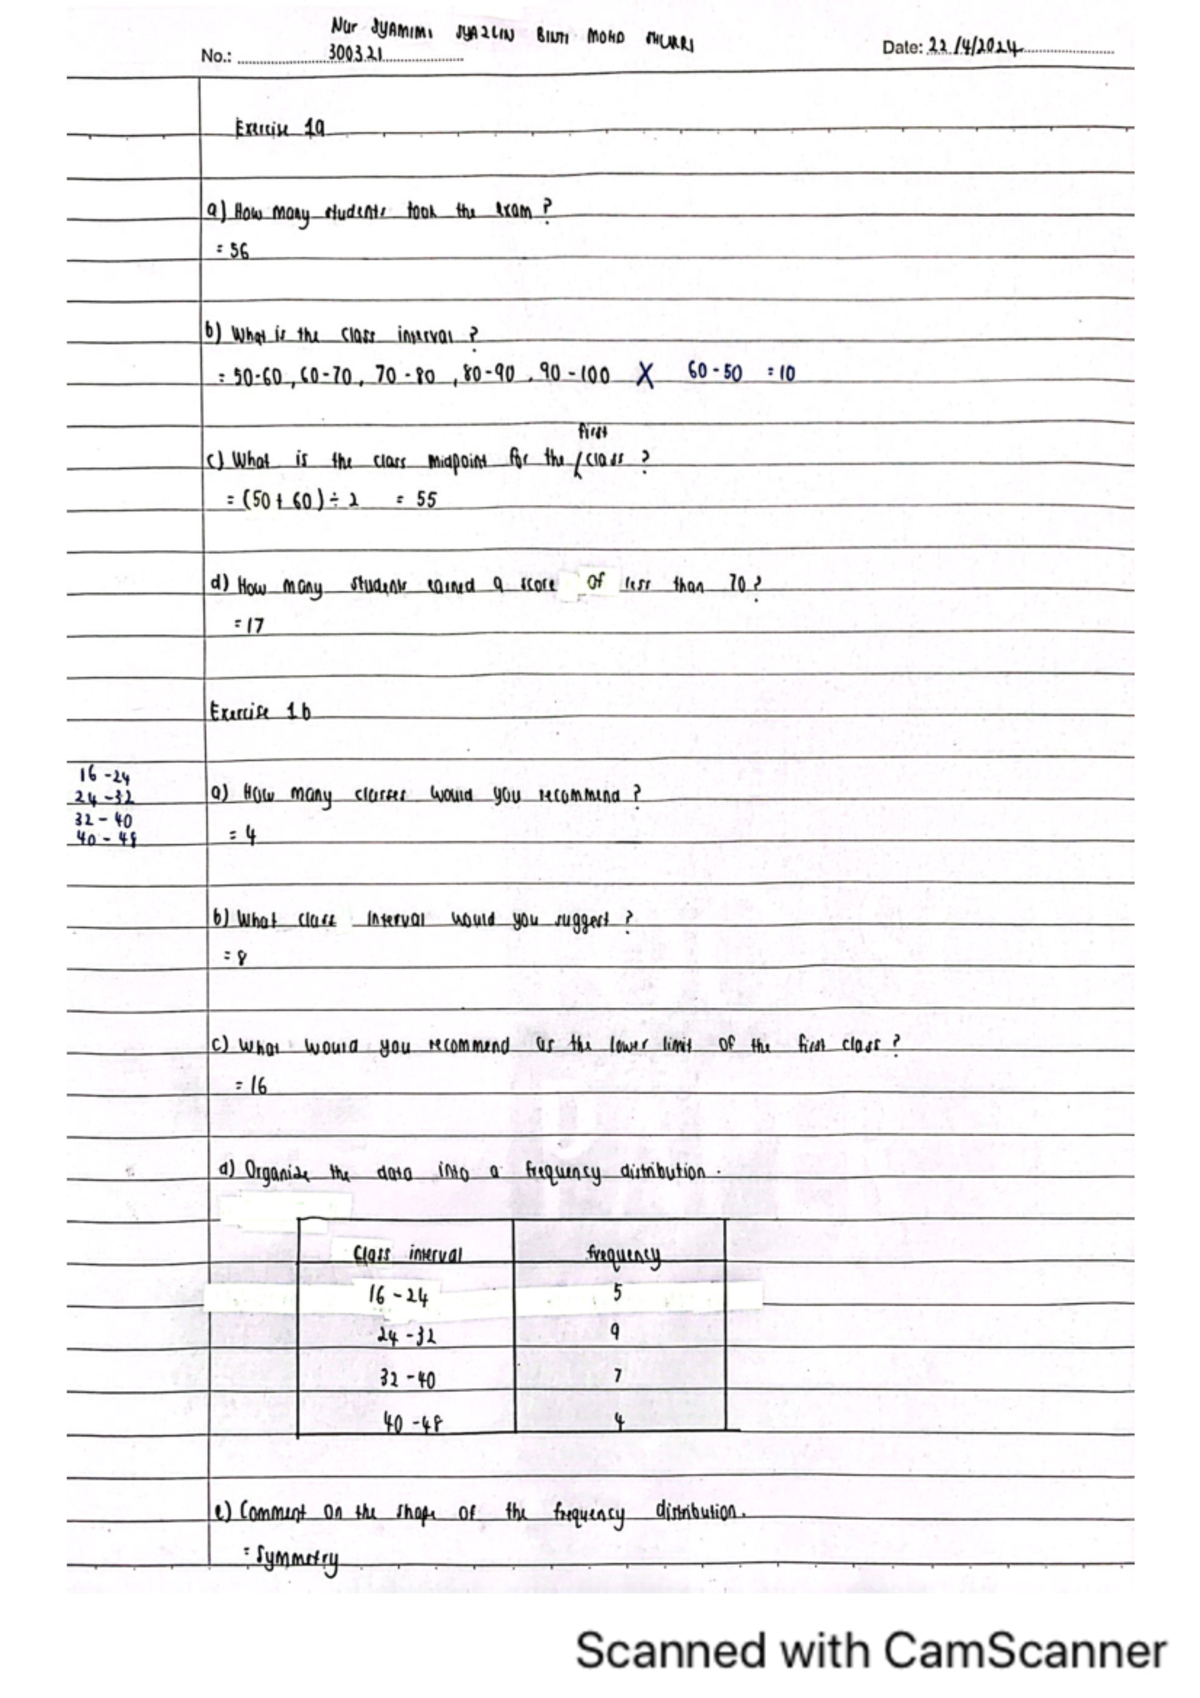 Nur SYAMIMI SYAZLIN BINTI MOHD SHUKRI
No.: 300321
Date: 22/4/2024
Exercise 1a
a) How many students took the exam?
= 56
b) What is the class interval?
= 50-60, 60-70, 70-80, 80-90, 90-100 X 60-50 = 10
first
c) What is the class midpoint for the class?
= (50+60) ÷ 2 = 55
d) How many students earned a score of less than 70?
= 17
Exercise 1b
16-24
24-32
32-40
40-48
a) How many classes would you recommend?
= 4
b) What class interval would you suggest?
= 8
c) What would you recommend as the lower limit of the first class?
= 16
d) Organize the data into a frequency distribution.
Class interval frequency
16-24 5
24-32 9
32-40 7
40-48 4
e) Comment on the shape of the frequency distribution.
= Symmetry
Scanned with CamScanner